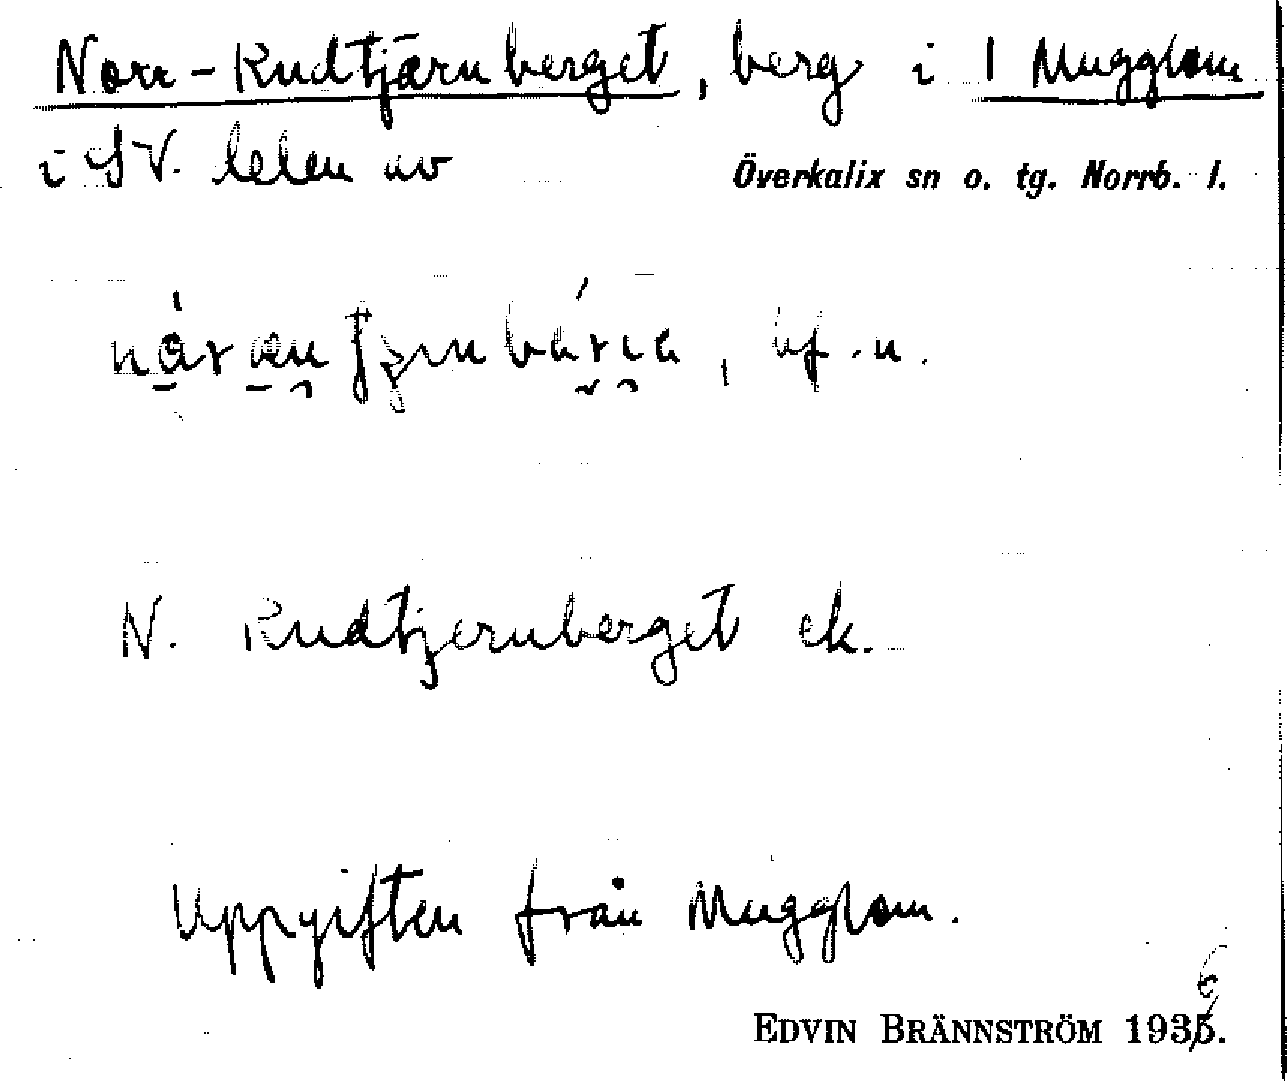 Norr-Rudtjärnberget, berg i 1 Mugglom
i SV. delen av
Överkalix sn o. tg. Norrb. l.
N. Rudtjernberget ek.
Uppgiften från Mugglom.
EDVIN BRÄNNSTRÖM 1936.